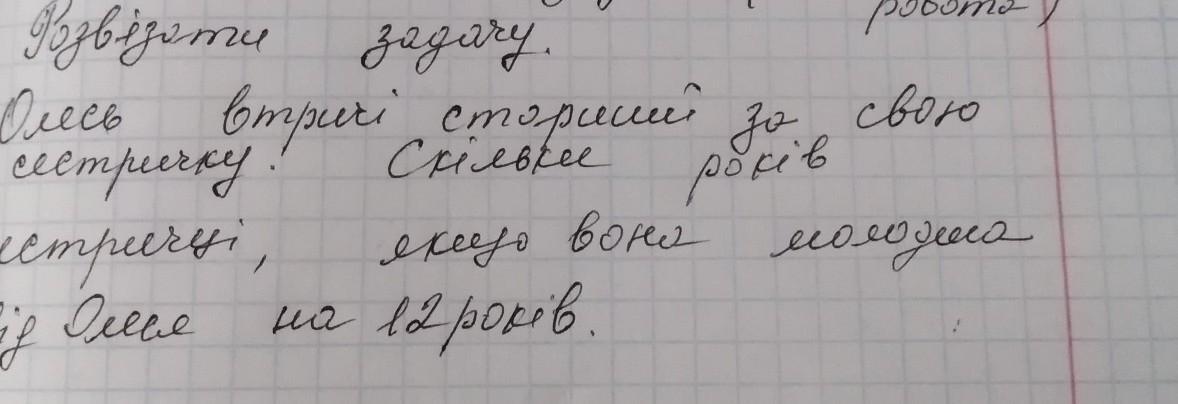 робота)
Розвізати задачу.
Олесь втричі старший за свою
сестричку. Скільки років
естричці, якщо вона молодша
ід Олеся на 12 років.